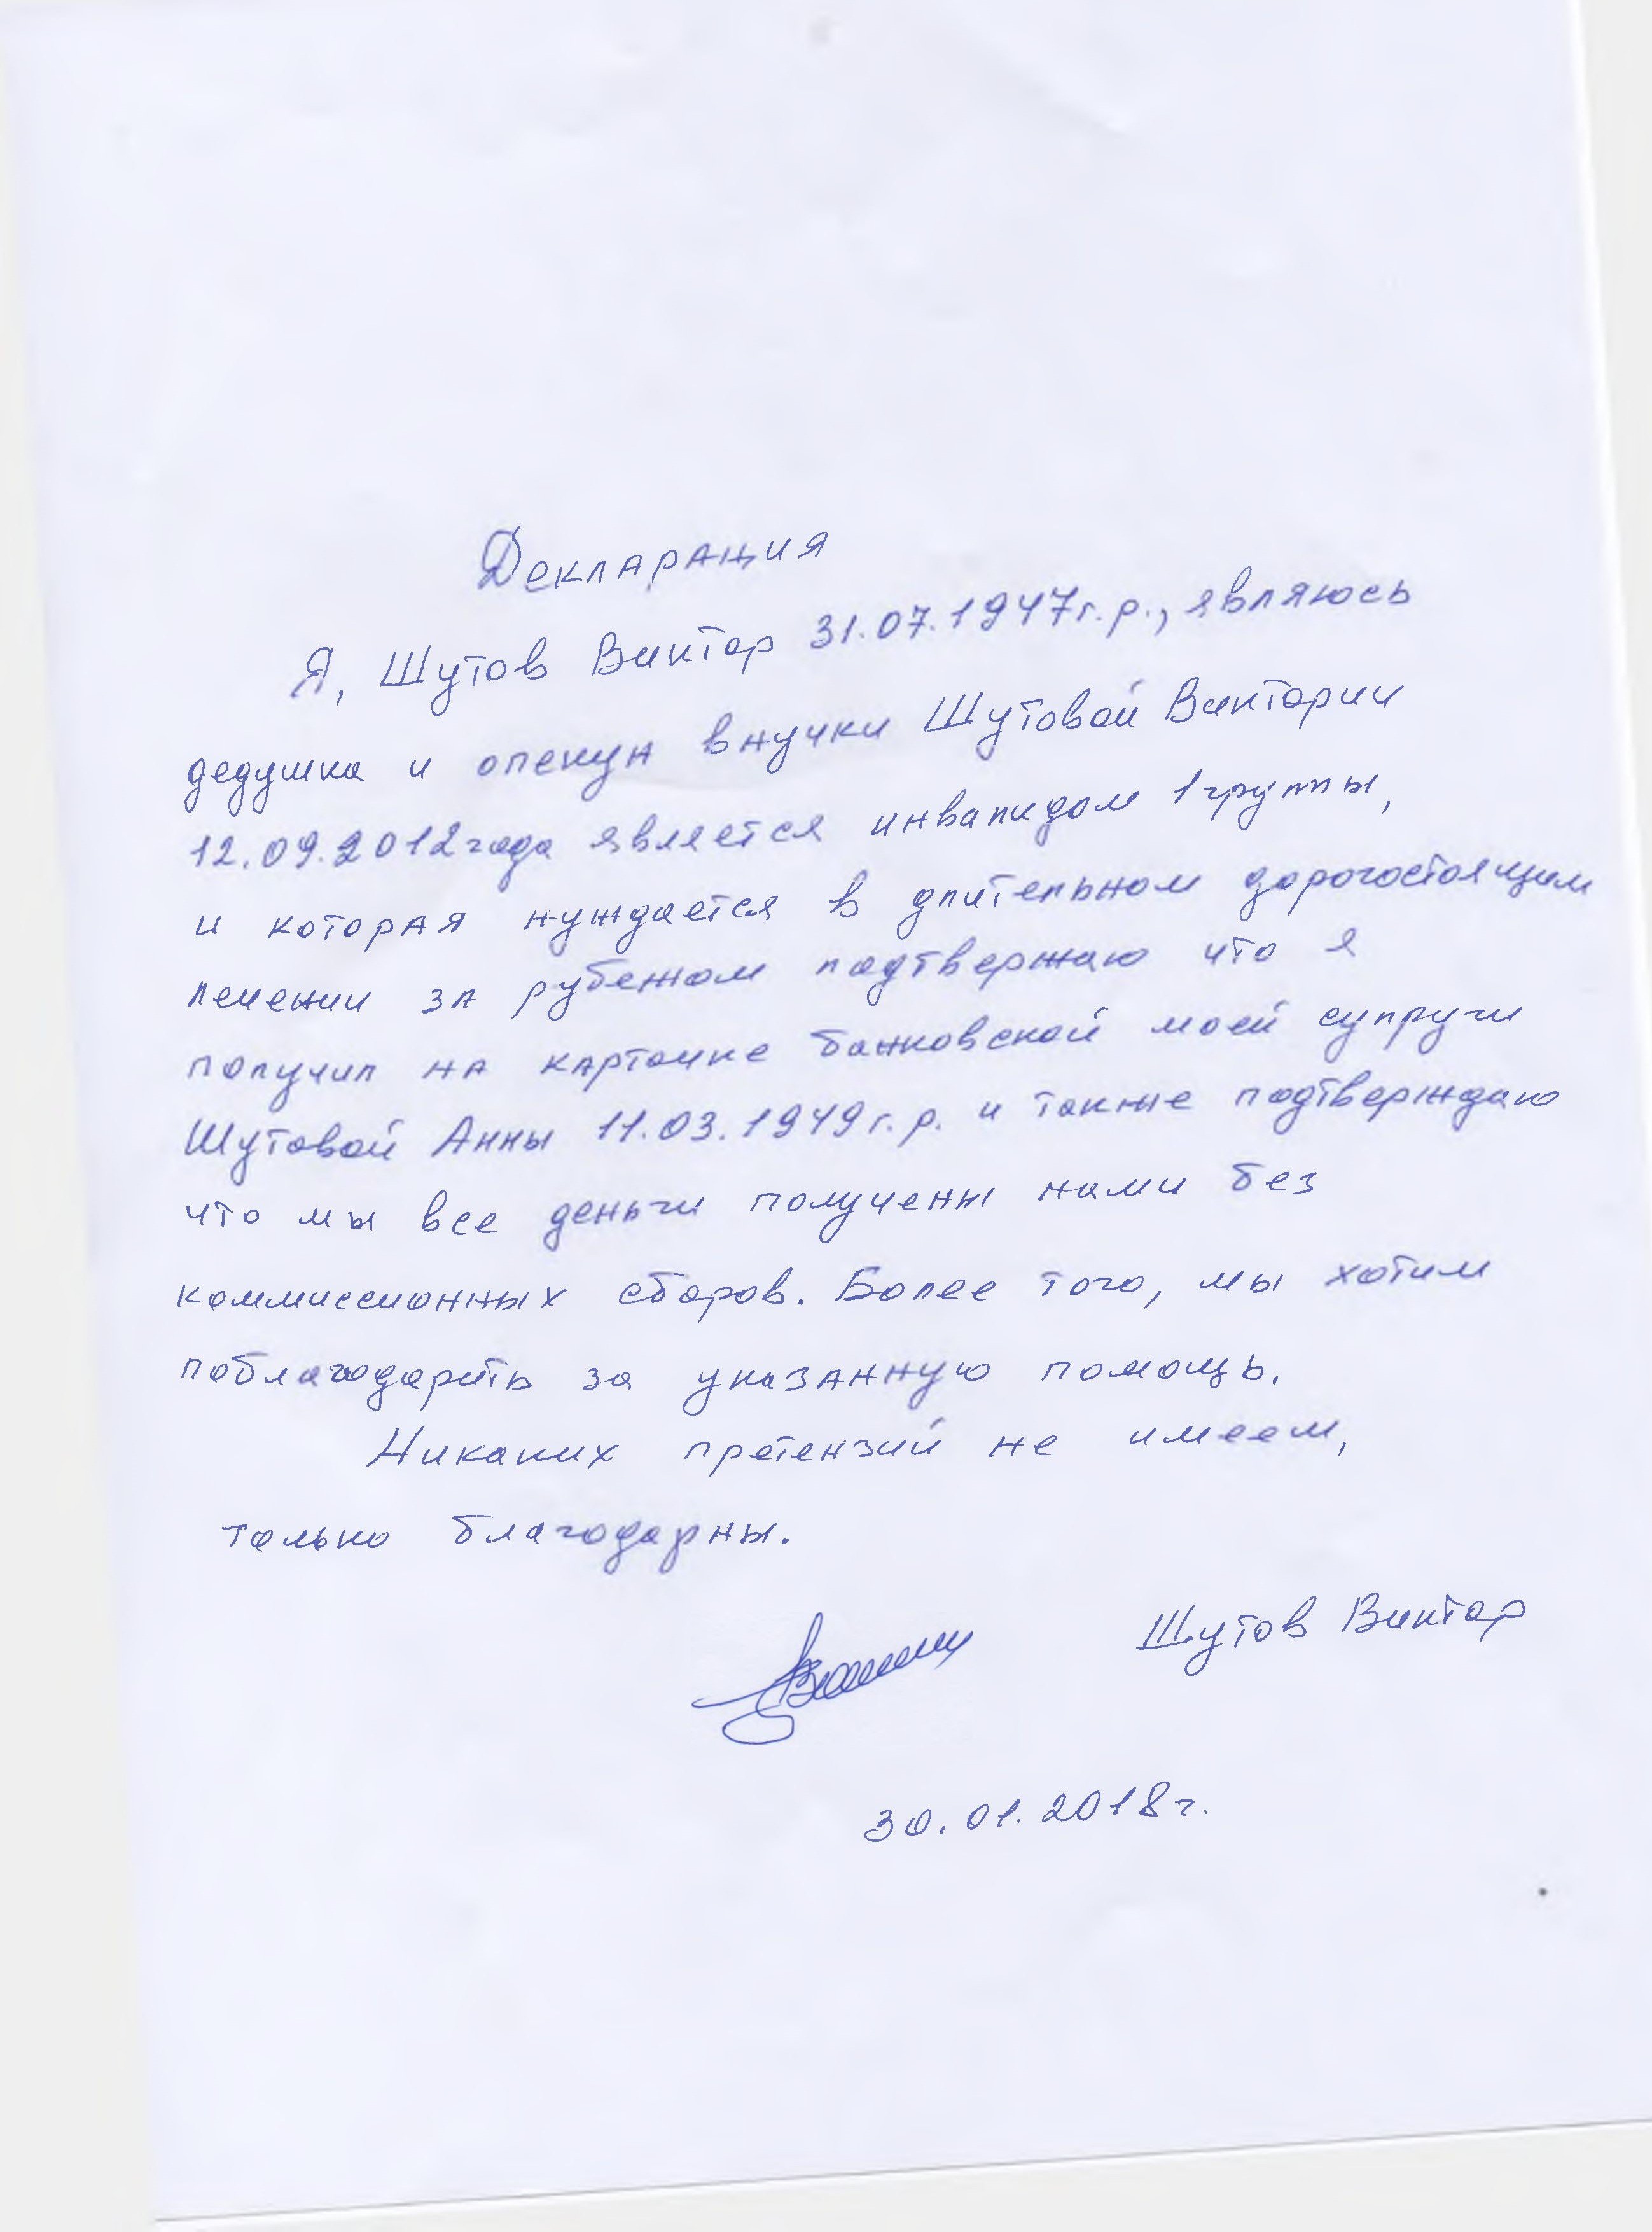 Декларация
Я, Шутов Виктор 31.07.1947г.р., являюсь
дедушка и опекун внучки Шутовой Виктории
12.09.2012года является инвалидом 1группы,
и которая нуждается в длительном дорогостоящем
лечении за рубежом подтвержаю что я
получил на карточке банковской моей супруги
Шутовой Анны 11.03.1949г.р. и также подтверждаю
что мы все деньги получены нами без
коммиссионных сборов. Более того, мы хотим
поблагодарить за указанную помощь.
Никаких претензий не имеем,
только благодарны.
Шутов Виктор
30.01.2018г.